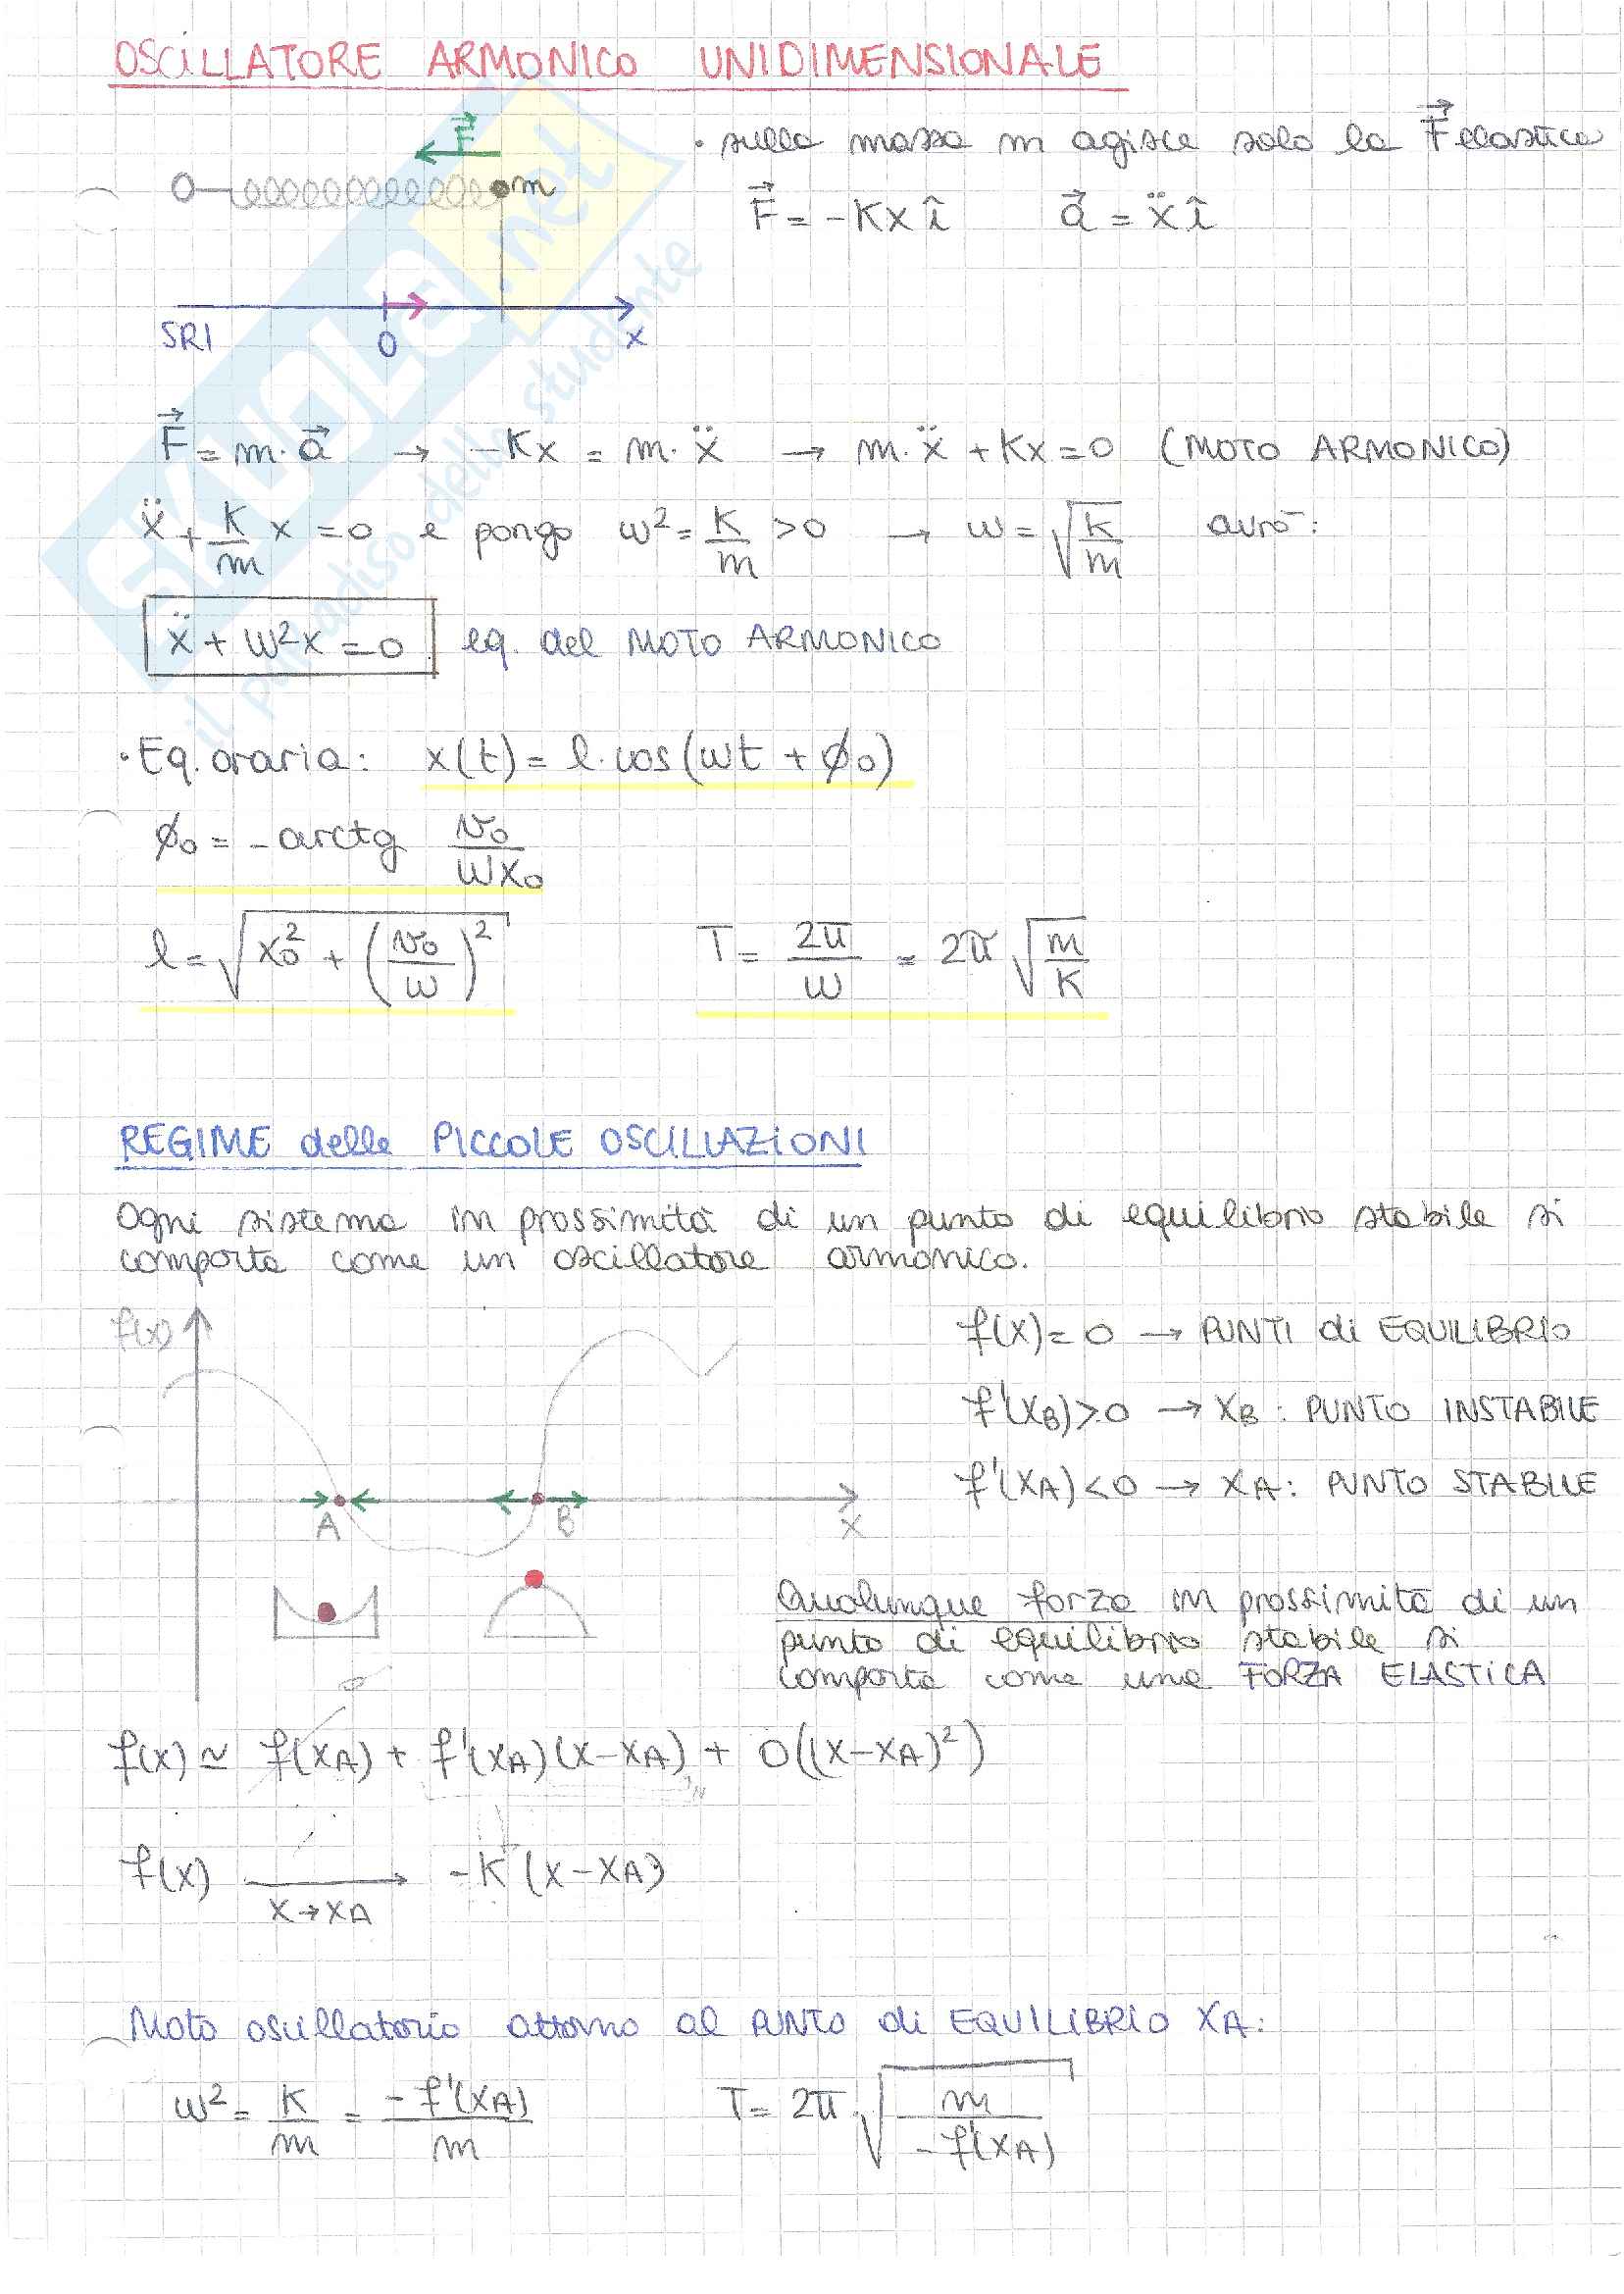 OSCILLATORE ARMONICO UNIDIMENSIONALE
F⃗
O m
• sulla massa m agisce solo la F⃗ elastica
F⃗ = -Kx î    a⃗ = ẍ î
SRI 0 x
F⃗ = m·a⃗ → -Kx = m·ẍ → m·ẍ + Kx = 0 (MOTO ARMONICO)
ẍ + K/m x = 0 e pongo ω² = K/m > 0 → ω = √(K/m) avrò:
ẍ + ω²x = 0 eq. del MOTO ARMONICO
• Eq. oraria: x(t) = l·cos(ωt + ϕ₀)
ϕ₀ = -arctg v₀/ωx₀
l = √(x₀² + (v₀/ω)²)    T = 2π/ω = 2π √(m/K)
REGIME delle PICCOLE OSCILLAZIONI
Ogni sistema in prossimità di un punto di equilibrio stabile si
comporta come un oscillatore armonico.
f(x)
f(x) = 0 → PUNTI di EQUILIBRIO
f'(xB) > 0 → xB : PUNTO INSTABILE
f'(xA) < 0 → xA : PUNTO STABILE
A B x
Qualunque forza in prossimità di un
punto di equilibrio stabile si
comporta come una FORZA ELASTICA
f(x) ≃ f(xA) + f'(xA)(x-xA) + O((x-xA)²)
f(x) → -K (x-xA)
x→xA
Moto oscillatorio attorno al PUNTO di EQUILIBRIO xA:
ω² = K/m = -f'(xA)/m    T = 2π·√(m/-f'(xA))
SKUOLA.net
il paradiso dello studente